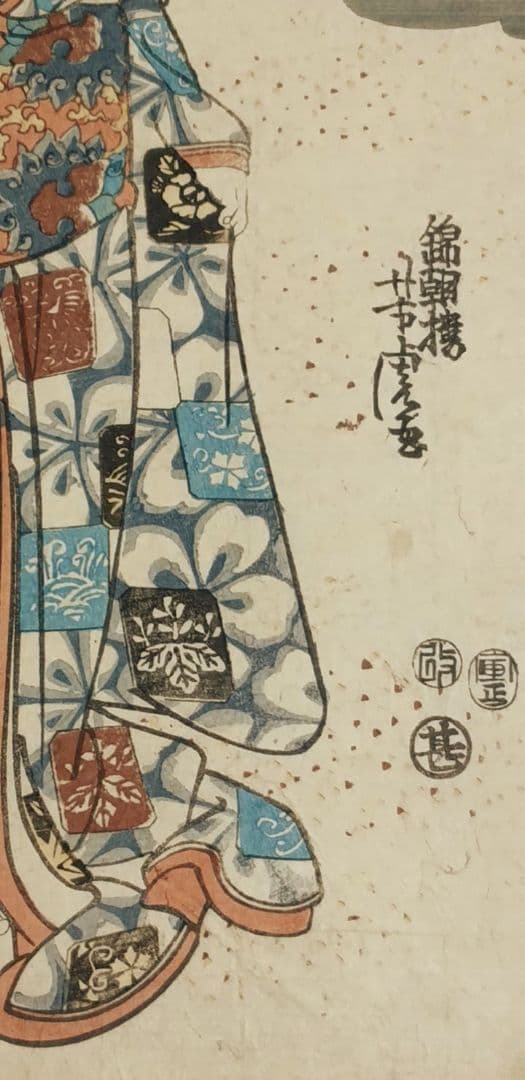 錦朝楼
芳虎画
改
甚